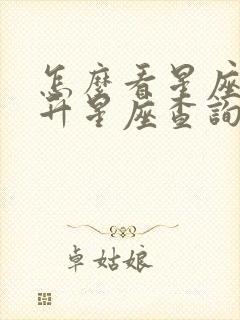 怎麼看星座
升星座查詢
卓姑娘